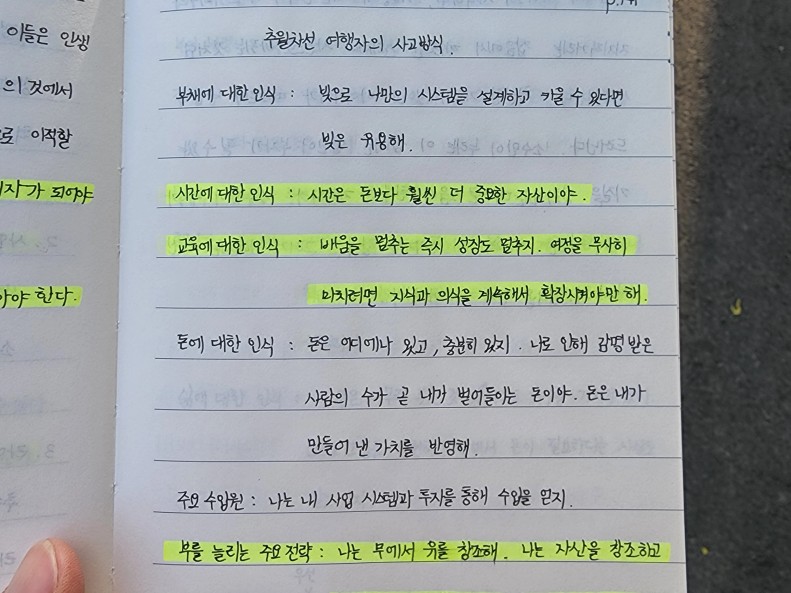 이들은 인생
의 것에서
로 이적할
자가 되어야
아야 한다.
추월차선 여행자의 사고방식.
부채에 대한 인식 : 빚으로 나만의 시스템을 설계하고 키울 수 있다면
빚은 유용해.
시간에 대한 인식 : 시간은 돈보다 훨씬 더 중요한 자산이야.
교육에 대한 인식 : 배움을 멈추는 즉시 성장도 멈추지. 여정을 무사히
마치려면 지식과 의식을 계속해서 확장시켜야만 해.
돈에 대한 인식 : 돈은 어디에나 있고, 충분히 있지. 나로 인해 감명 받은
사람의 수가 곧 내가 벌어들이는 돈이야. 돈은 내가
만들어 낸 가치를 반영해.
주요 수입원 : 나는 내 사업 시스템과 투자를 통해 수입을 얻지.
부를 늘리는 주요 전략 : 나는 무에서 유를 창조해. 나는 자산을 창조하고